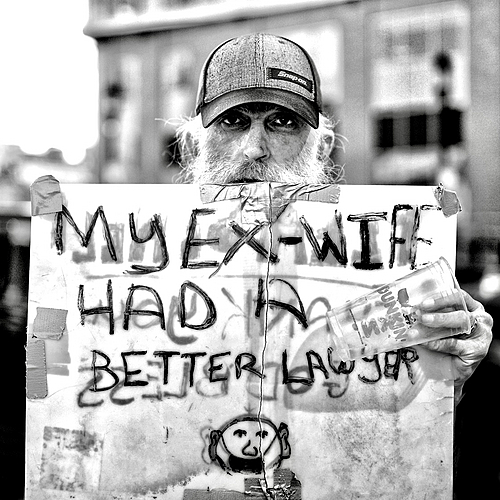 Snap-on
MY EX-WIFE
HAD A
BETTER LAWYER